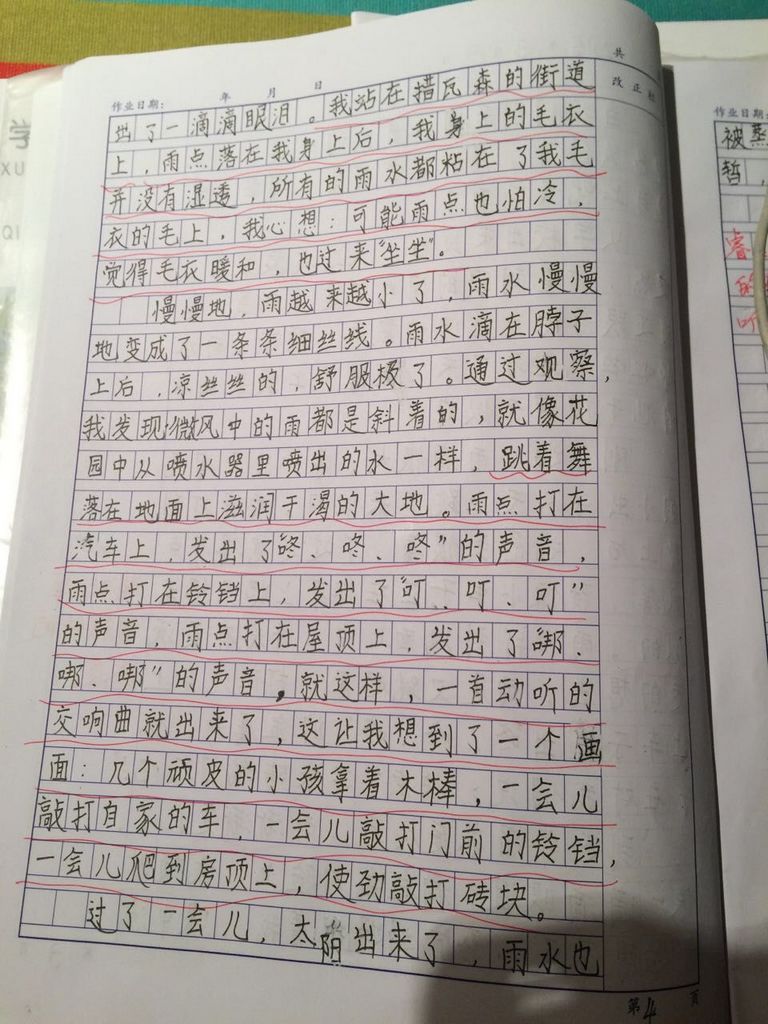 共
作业日期: 年 月 日
改正栏
出了一滴滴眼泪。我站在措瓦森的街道
上，雨点落在我身上后，我身上的毛衣
并没有湿透，所有的雨水都粘在了我毛
衣的毛上，我心想：可能雨点也怕冷，
觉得毛衣暖和，也过来“坐坐”。
慢慢地，雨越来越小了，雨水慢慢
地变成了一条条细丝线。雨水滴在脖子
上后，凉丝丝的，舒服极了。通过观察，
我发现微风中的雨都是斜着的，就像花
园中从喷水器里喷出的水一样，跳着舞
落在地面上滋润干渴的大地。雨点打在
汽车上，发出了“咚、咚、咚”的声音，
雨点打在铃铛上，发出了“叮、叮、叮”
的声音，雨点打在屋顶上，发出了“唧、
唧、唧”的声音，就这样，一首动听的
交响曲就出来了，这让我想到了一个画
面：几个顽皮的小孩拿着木棒，一会儿
敲打自家的车，一会儿敲打门前的铃铛，
一会儿爬到房顶上，使劲敲打砖块。
过了一会儿，太阳出来了，雨水也
第4页
学
XU
QI
作业日期:
被蒸
哲，
睿
的
听